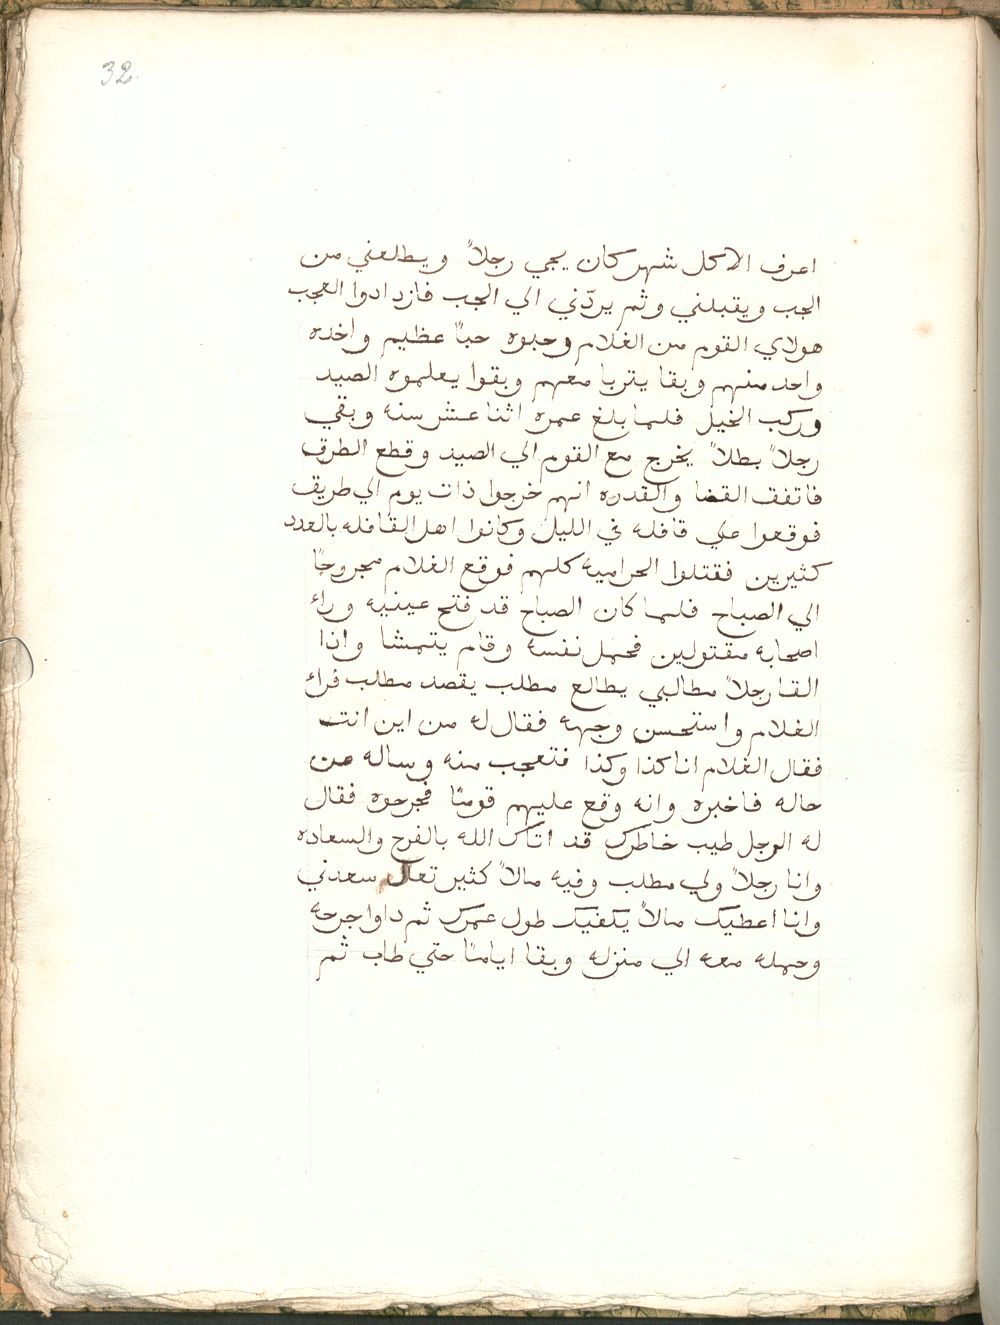 32
اعرف الا كل شهر كان يجي رجلاً ويطلعني من
الجب ويقبلني وثم يردّني الي الجب فازدادوا العجب
هولاي القوم من الغلام وحبوه حباً عظيم واخده
واحد منهم وبقا يتربا معهم وبقوا يعلموه الصيد
وركب الخيل فلما بلغ عمره اثنا عشر سنه وبقي
رجلاً بطلاً يخرج مع القوم الي الصيد وقطع الطرق
فاتفق القضا والقدره انهم خرجوا ذات يوم الي طريق
فوقعوا علي قافله في الليل وكانوا اهل القافله بالعدد
كثيرين فقتلوا الحراميه كلهم فوقع الغلام مجروحاً
الي الصباح فلما كان الصباح قد فتح عينيه وراء
اصحابه مقتولين فحمل نفسه وقام يتمشا واذا
القا رجلاً مطالبي يطالع مطلب يقصد مطلب فراء
الغلام واستحسن وجهه فقال له من اين انت
فقال الغلام انا كذا وكذا فتعجب منه وساله عن
حاله فاخبره وانه وقع عليهم قوماً فجرحوه فقال
له الرجل طيب خاطرك قد اتاك الله بالفرح والسعاده
وانا رجلاً ولي مطلب وفيه مالاً كثير تعال سعدني
وانا اعطيك مالاً يكفيك طول عمرك ثم داوا جرحه
وحمله معه الي منزله وبقا اياماً حتي طاب ثم